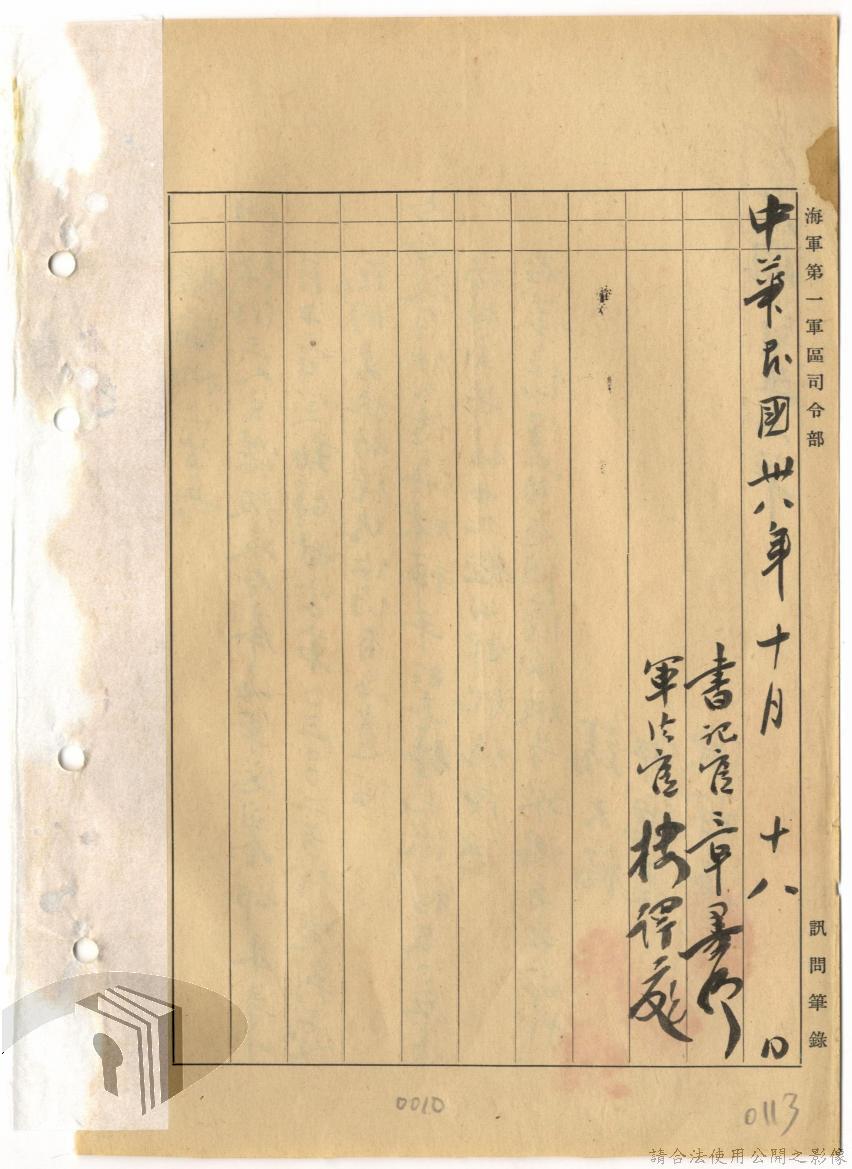 海軍第一軍區司令部 訊問筆錄
中華民國卅八年十月十八日
書記官 章
軍法官 樓得庭
0010
0113
請合法使用公開之影像